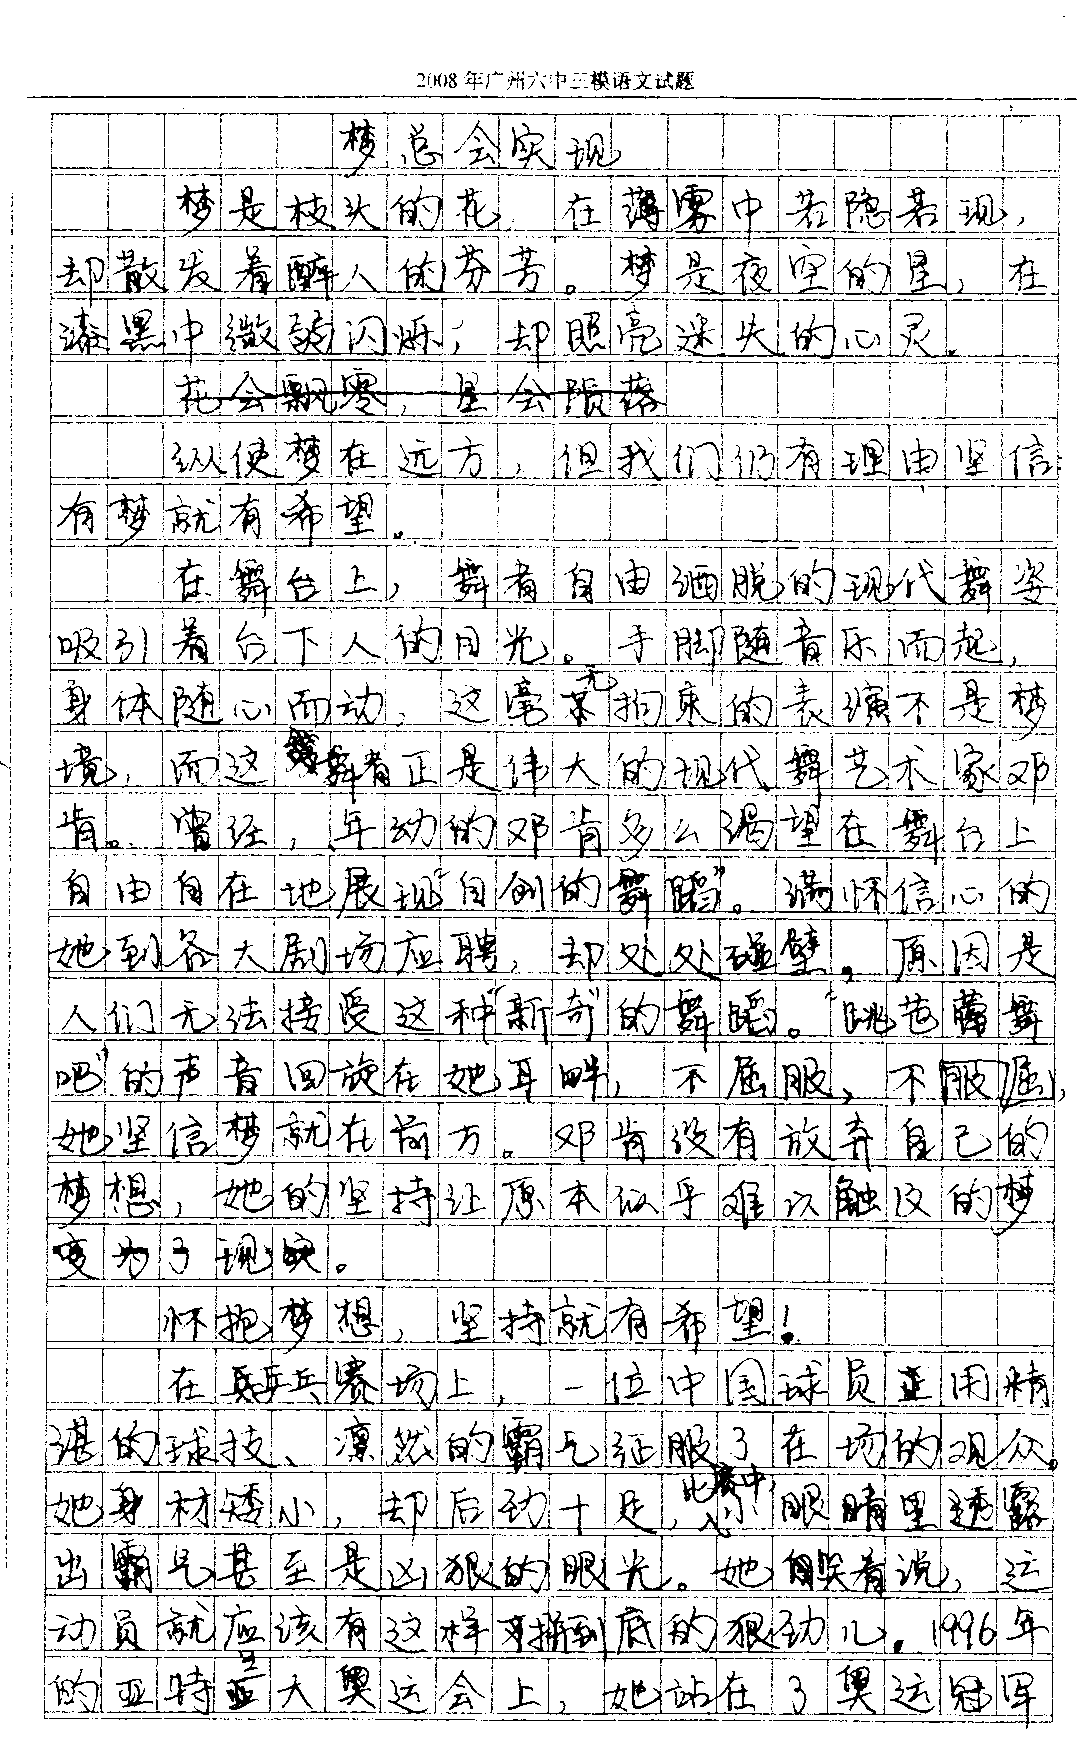 2008年广州六中三模语文试题
梦总会实现
梦是枝头的花,在薄雾中若隐若现,
却散发着醉人的芬芳。梦是夜空的星,在
漆黑中微弱闪烁,却照亮迷失的心灵。
花会飘零,星会陨落
纵使梦在远方,但我们仍有理由坚信:
有梦就有希望。
在舞台上,舞者自由洒脱的现代舞姿
吸引着台下人的目光。手脚随音乐而起,
身体随心而动,这毫无拘束的表演不是梦
境,而这舞者正是伟大的现代舞艺术家邓
肯。曾经,年幼的邓肯多么渴望在舞台上
自由自在地展现“自创的舞蹈”。满怀信心的
她到各大剧场应聘,却处处碰壁。原因是
人们无法接受这种“新奇”的舞蹈。“跳芭蕾舞
吧”的声音回旋在她耳畔,不屈服,不服屈,
她坚信梦就在前方。邓肯没有放弃自己的
梦想,她的坚持让原本似乎难以触及的梦
变为了现实。
怀抱梦想,坚持就有希望!
在乒乓赛场上,一位中国球员正用精
湛的球技、凛然的霸气征服了在场的观众。
她身材矮小,却后劲十足,比赛中,小眼睛里透露
出霸气甚至是凶狠的眼光。她笑着说,运
动员就应该有这样拼到底的狠劲儿。1996年
的亚特兰大奥运会上,她站在了奥运冠军